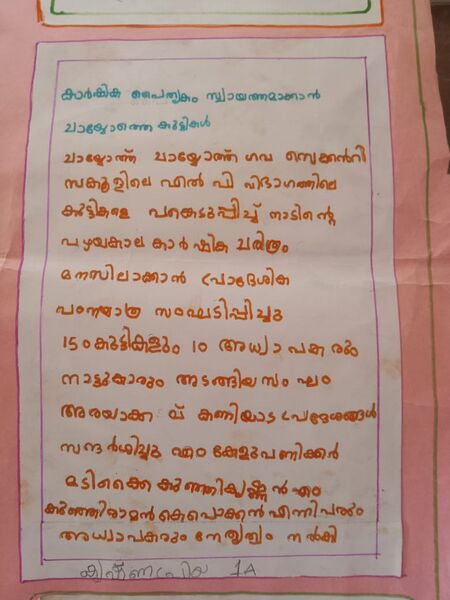 കാർഷിക പൈതൃകം സ്വായത്തമാക്കാൻ
ചായ്യോത്തെ കുട്ടികൾ
ചായ്യോത്ത് ചായ്യോത്ത് ഗവ സെക്കൻ്ററി
സക്കൂളിലെ എൽ പി വിഭാഗത്തിലെ
കുട്ടികളെ പങ്കെടുപ്പിച്ച് നാടിൻ്റെ
പഴയകാല കാർഷിക ചരിത്രം
മനസിലാക്കാൻ പ്രാദേശിക
പഠനയാത്ര സംഘടിപ്പിച്ചു
150 കുട്ടികളും 10 അധ്യാപക രും
നാട്ടുകാരും അടങ്ങിയ സം ഘം
അരയാക്ക ല് കണിയാട പ്രദേശങ്ങൾ
സന്ദർശിച്ചു എം കേളുപണിക്കർ
മടിക്കൈ കുഞ്ഞികൃഷ്ണൻ എം
കുഞ്ഞിരാമൻ കെ പൊക്കൻ എന്നിവരും
അധ്യാപകരും നേതൃത്വം നൽകി
കൃഷ്ണപ്രിയ 1A